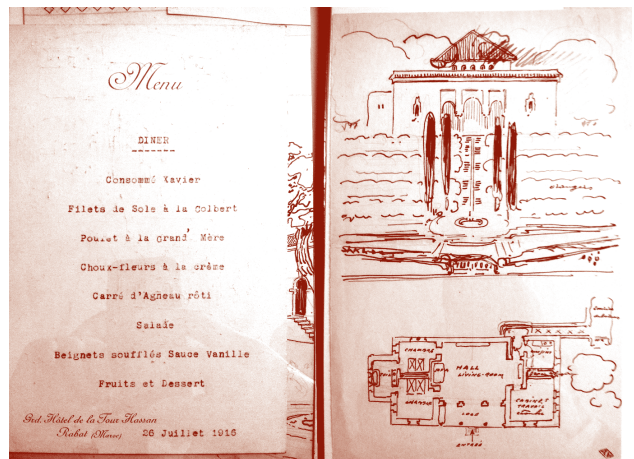 Menu
DINER
Consommé Xavier
Filets de Sole à la Colbert
Poulet à la grand' Mère
Choux-fleurs à la crème
Carré d'Agneau rôti
Salade
Beignets soufflés Sauce Vanille
Fruits et Dessert
Grd. Hôtel de la Tour Hassan
Rabat (Maroc) 26 Juillet 1916
CHAMBRE
HALL
LIVING-ROOM
CHAMBRE
CABINET
TRAVAIL
ENTRÉE